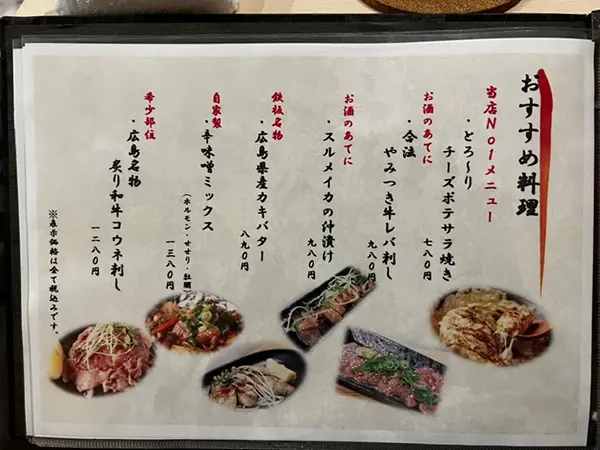 おすすめ料理
当店No1メニュー
・とろ〜り
チーズポテサラ焼き
七八〇円
お酒のあてに
・合法
やみつき牛レバ刺し
九八〇円
お酒のあてに
・スルメイカの沖漬け
九八〇円
鉄板名物
・広島県産カキバター
八九〇円
自家製
・辛味噌ミックス
（ホルモン・せせり・牡蠣）
一三八〇円
希少部位
・広島名物
炙り和牛コウネ刺し
一二八〇円
※表示価格は全て税込みです。